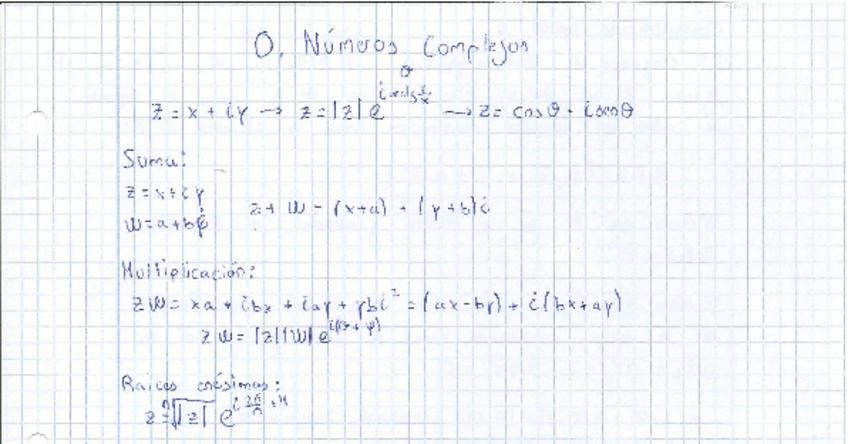 0. Números Complejos
θ
z = x + iy → z = |z| e^{i arctg y/x} → z = cos θ + i sen θ
Suma:
z = x + iy
w = a + bi
z + w = (x+a) + (y+b)i
Multiplicación:
zw = xa + ibx + iay + ybi² = (ax - by) + i(bx + ay)
zw = |z||w| e^{i(θ + φ)}
Raices enésimas:
z = ⁿ√|z| e^{i 2π/n}